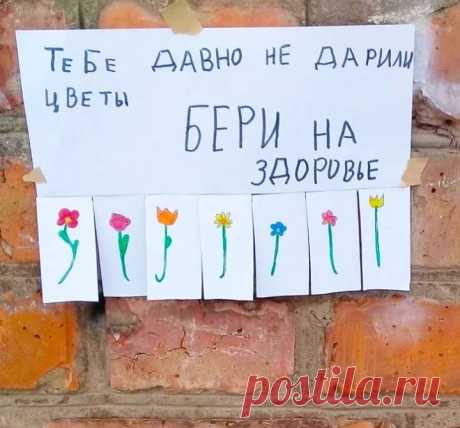 ТЕБЕ ДАВНО НЕ ДАРИЛИ
ЦВЕТЫ
БЕРИ НА
ЗДОРОВЬЕ
postila.ru